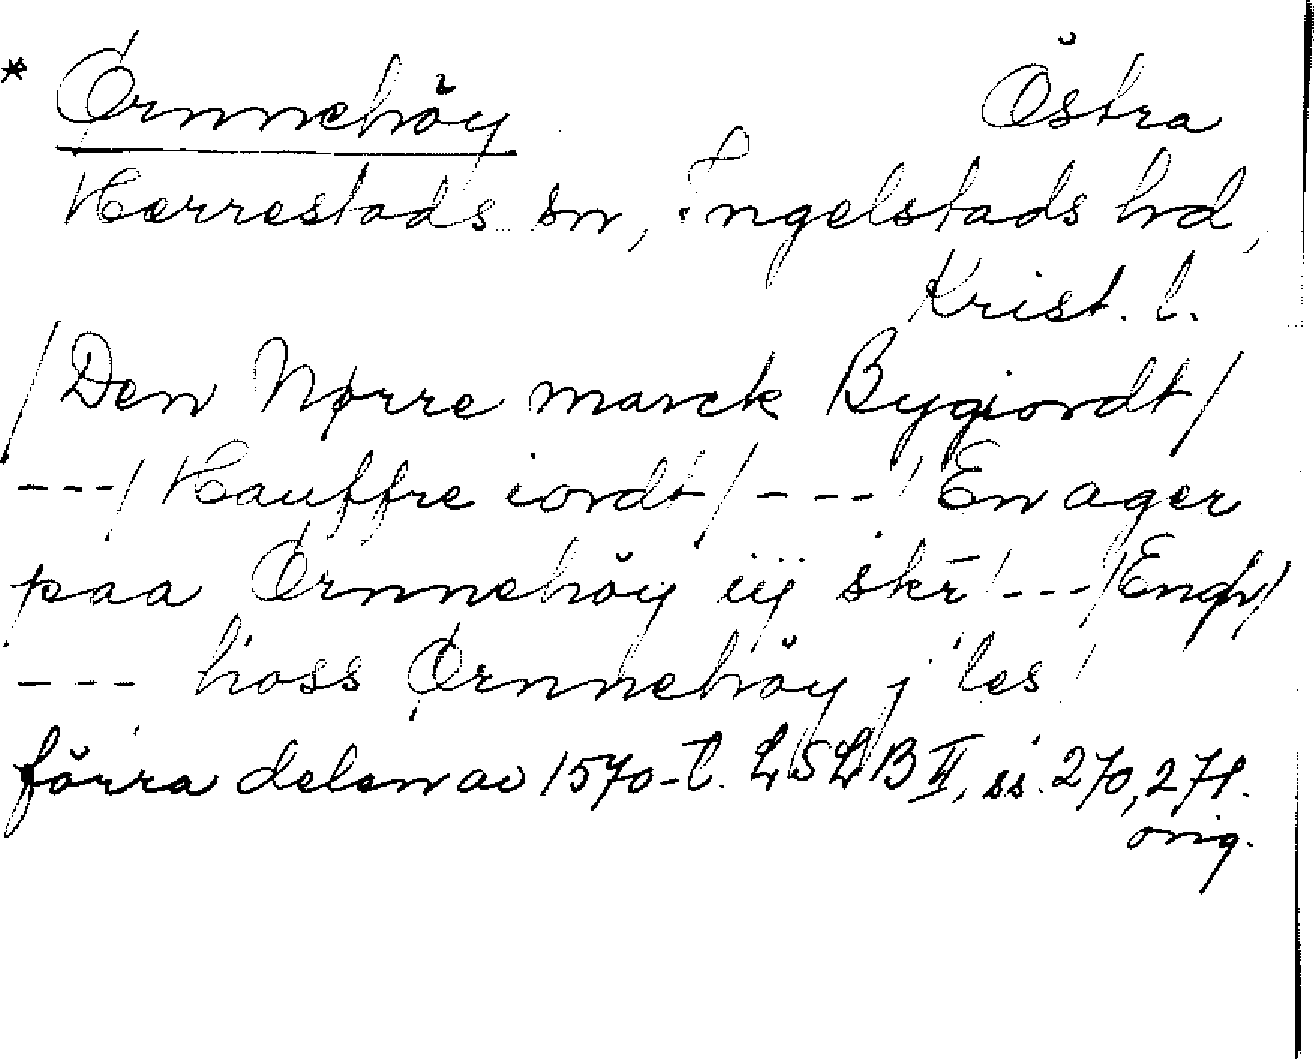 * Ørnnehöy Östra
Herrestads sn, Ingelstads hd,
Krist. l.
/Den Nørre marck Bygiordt/
---/Hauffre iordt/---/En ager
paa Ørnnehöy iij skr̄/---/Engh/
--- hoss Ørnnehöy j les/
förra delen av 1570-t. LSLB II, ss. 270, 271.
orig.